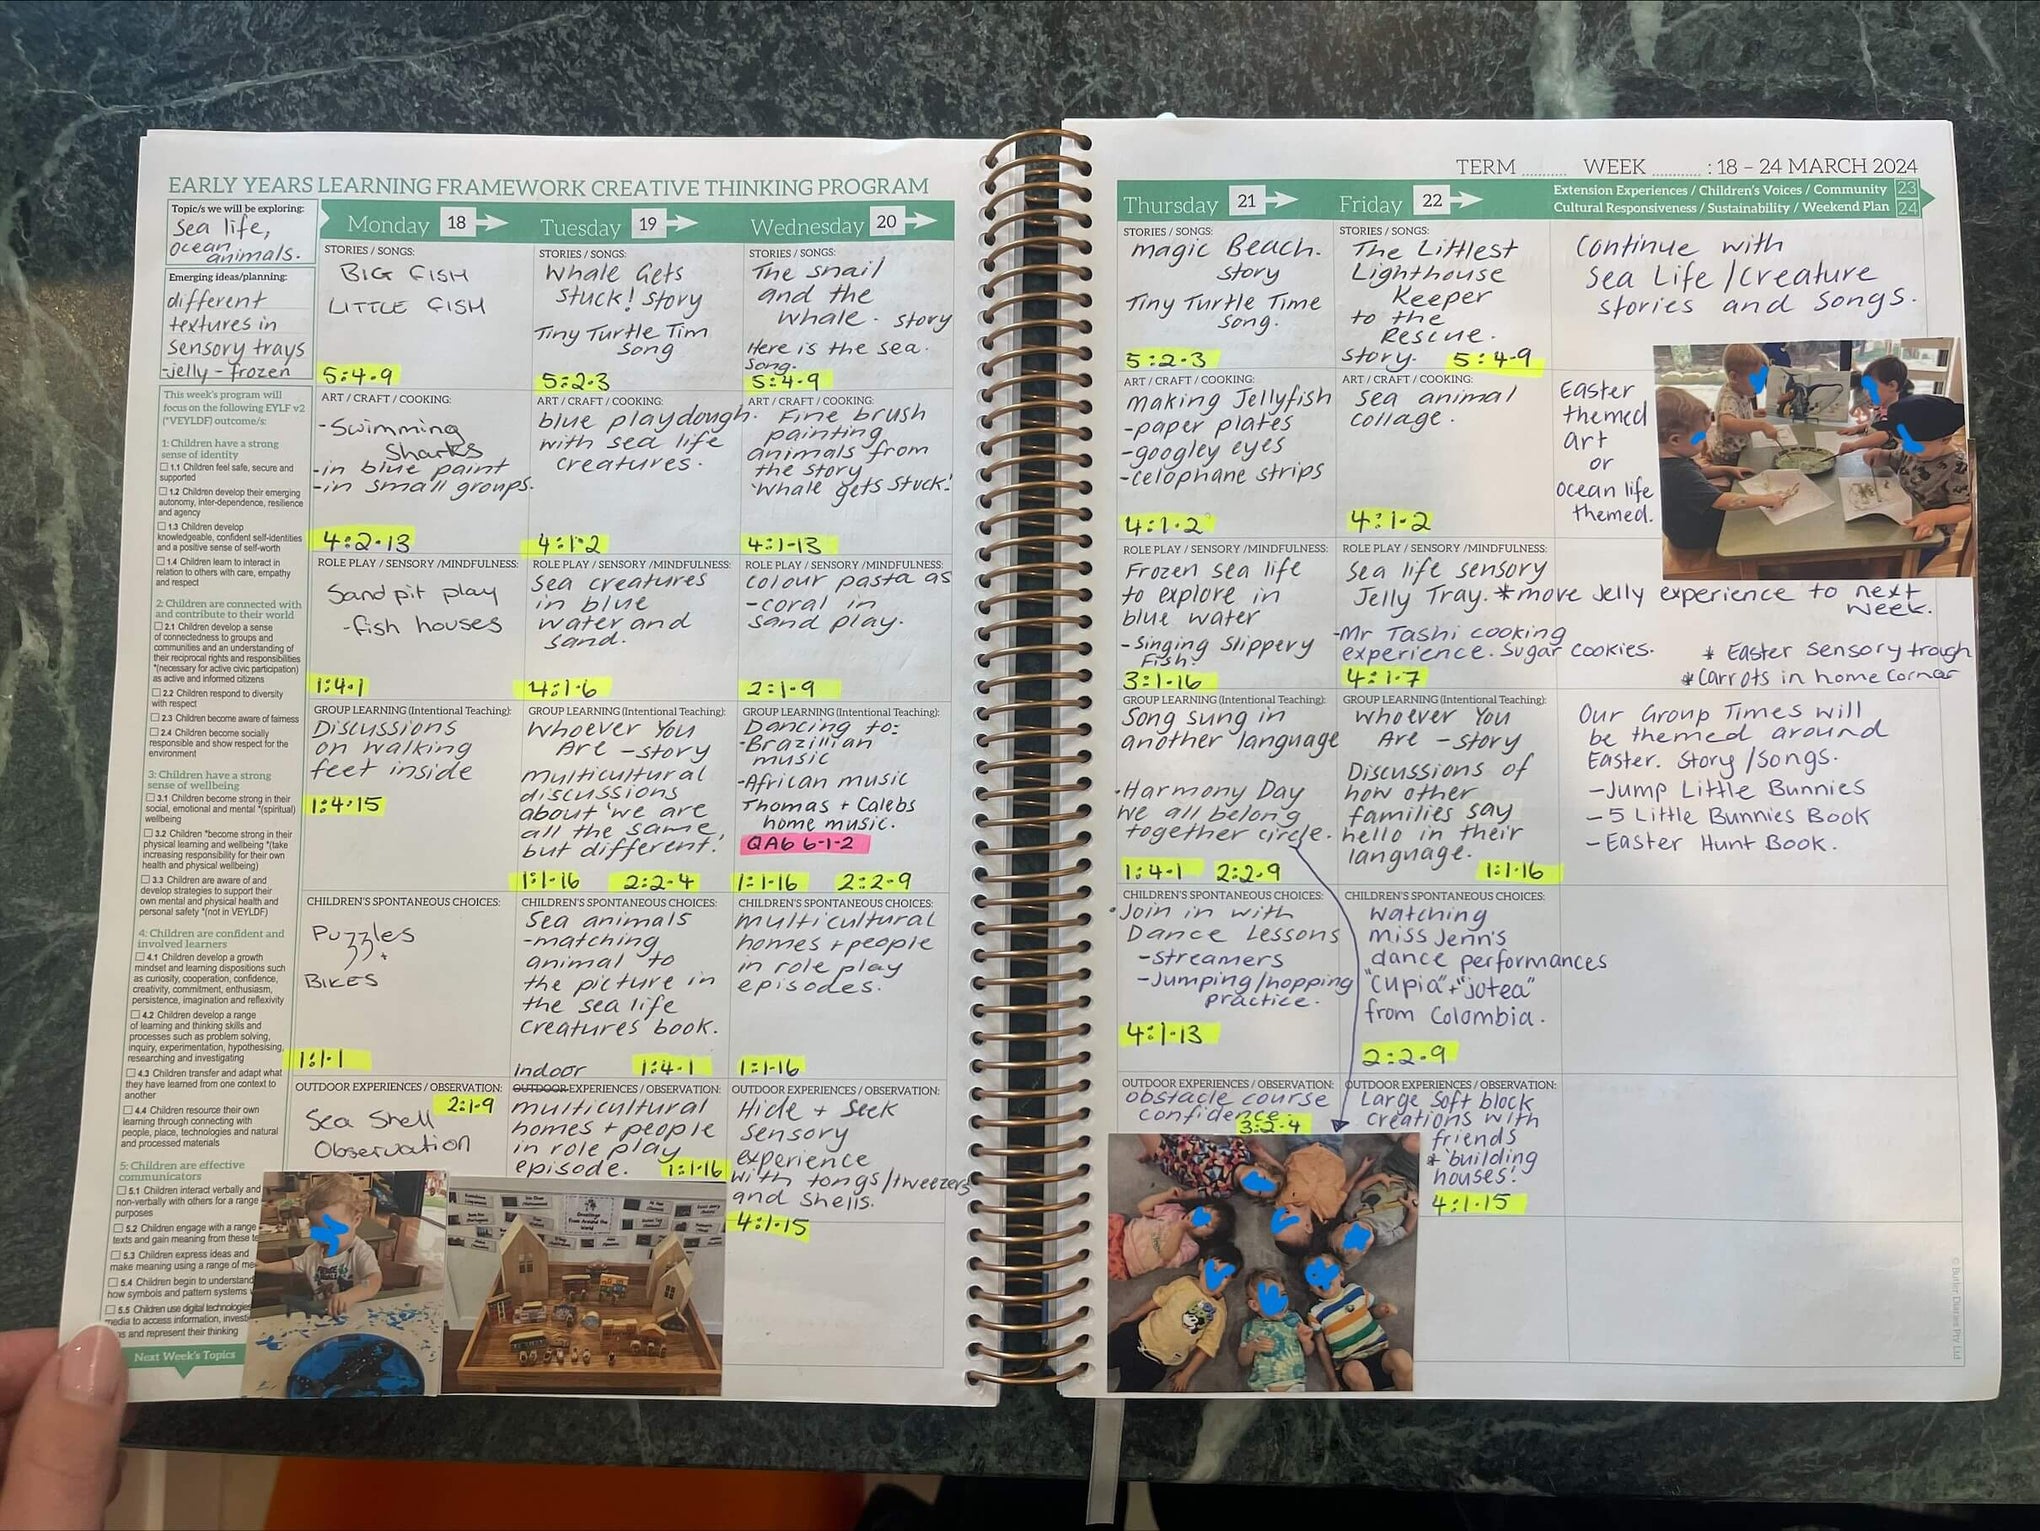 EARLY YEARS LEARNING FRAMEWORK CREATIVE THINKING PROGRAM
Topic/s we will be exploring:
Sea life,
ocean
animals.
Emerging ideas/planning:
different
textures in
sensory trays
-jelly - frozen
This week's program will
focus on the following EYLF v2
(*VEYLDF) outcome/s:
1: Children have a strong
sense of identity
1.1 Children feel safe, secure and
supported
1.2 Children develop their emerging
autonomy, inter-dependence, resilience
and agency
1.3 Children develop
knowledgeable, confident self-identities
and a positive sense of self-worth
1.4 Children learn to interact in
relation to others with care, empathy
and respect
2: Children are connected with
and contribute to their world
2.1 Children develop a sense
of connectedness to groups and
communities and an understanding of
their reciprocal rights and responsibilities
*(necessary for active civic participation)
as active and informed citizens
2.2 Children respond to diversity
with respect
2.3 Children become aware of fairness
2.4 Children become socially
responsible and show respect for the
environment
3: Children have a strong
sense of wellbeing
3.1 Children become strong in their
social, emotional and mental *(spiritual)
wellbeing
3.2 Children *become strong in their
physical learning and wellbeing *(take
increasing responsibility for their own
health and physical wellbeing)
3.3 Children are aware of and
develop strategies to support their
own mental and physical health and
personal safety *(not in VEYLDF)
4: Children are confident and
involved learners
4.1 Children develop a growth
mindset and learning dispositions such
as curiosity, cooperation, confidence,
creativity, commitment, enthusiasm,
persistence, imagination and reflexivity
4.2 Children develop a range
of learning and thinking skills and
processes such as problem solving,
inquiry, experimentation, hypothesising,
researching and investigating
4.3 Children transfer and adapt what
they have learned from one context to
another
4.4 Children resource their own
learning through connecting with
people, place, technologies and natural
and processed materials
5: Children are effective
communicators
5.1 Children interact verbally and
non-verbally with others for a range
purposes
5.2 Children engage with a range
texts and gain meaning from these
5.3 Children express ideas and
make meaning using a range of
5.4 Children begin to understand
how symbols and pattern systems
5.5 Children use digital technologies
media to access information,
and represent their thinking
Next Week's Topics
Monday 18
STORIES / SONGS:
BIG FISH
LITTLE FISH
5:4.9
ART / CRAFT / COOKING:
-Swimming
Sharks
-in blue paint
-in small groups.
4:2.13
ROLE PLAY / SENSORY /MINDFULNESS:
Sandpit play
-fish houses
1:4.1
GROUP LEARNING (Intentional Teaching):
Discussions
on walking
feet inside
1:4.15
CHILDREN'S SPONTANEOUS CHOICES:
Puzzles
+
BIKES
1:1.1
OUTDOOR EXPERIENCES / OBSERVATION:
2:1.9
Sea Shell
Observation
Tuesday 19
STORIES / SONGS:
Whale Gets
Stuck! story
Tiny Turtle Tim
Song
5:2.3
ART / CRAFT / COOKING:
blue playdough.
with sea life
creatures.
4:1.2
ROLE PLAY / SENSORY /MINDFULNESS:
Sea creatures
in blue
water and
sand.
4:1.6
GROUP LEARNING (Intentional Teaching):
Whoever You
Are - story
multicultural
discussions
about 'we are
all the same,
but different.'
1:1.16 2:2.4
CHILDREN'S SPONTANEOUS CHOICES:
Sea animals
-matching
animal to
the picture in
the sea life
creatures' book.
indoor 1:4.1
OUTDOOR EXPERIENCES / OBSERVATION:
multicultural
homes + people
in role play
episode. 1:1.16
Greetings
From Around the
World
Wednesday 20
STORIES / SONGS:
The snail
and the
whale. story
Here is the sea.
Song.
5:4.9
ART / CRAFT / COOKING:
Fine brush
painting
animals from
the story
'Whale gets Stuck!'
4:1.13
ROLE PLAY / SENSORY /MINDFULNESS:
colour pasta as
-coral in
sand play.
2:1.9
GROUP LEARNING (Intentional Teaching):
Dancing to:
-Brazillian
music
-African music
Thomas + Calebs
home music.
QA6 6-1-2
1:1.16 2:2.9
CHILDREN'S SPONTANEOUS CHOICES:
multicultural
homes + people
in role play
episodes.
1:1.16
OUTDOOR EXPERIENCES / OBSERVATION:
Hide + Seek
Sensory
experience
with tongs/tweezers
and shells.
4:1.15
TERM WEEK : 18 – 24 MARCH 2024
Thursday 21
STORIES / SONGS:
Magic Beach.
story
Tiny Turtle Time
Song.
5:2.3
ART / CRAFT / COOKING:
Making Jellyfish
-paper plates
-googley eyes
-celophane strips
4:1.2
ROLE PLAY / SENSORY /MINDFULNESS:
Frozen sea life
to explore in
blue water
-Singing Slippery
Fish!
3:1.16
GROUP LEARNING (Intentional Teaching):
Song sung in
another language
·Harmony Day
We all belong
together circle.
1:4.1 2:2.9
CHILDREN'S SPONTANEOUS CHOICES:
·Join in with
Dance Lessons
-streamers
-Jumping/hopping
practice.
4:1.13
OUTDOOR EXPERIENCES / OBSERVATION:
obstacle course
confidence.
3:2.4
Friday 22
STORIES / SONGS:
The Littlest
Lighthouse
Keeper
to the
Rescue.
story. 5:4.9
ART / CRAFT / COOKING:
Sea animal
collage.
4:1.2
ROLE PLAY / SENSORY /MINDFULNESS:
Sea life sensory
Jelly Tray. *move Jelly experience to next
week.
-Mr Tashi cooking
experience. Sugar cookies.
4:1.7
GROUP LEARNING (Intentional Teaching):
Whoever You
Are - story
Discussions of
how other
families say
hello in their
language.
1:1.16
CHILDREN'S SPONTANEOUS CHOICES:
Watching
Miss Jenn's
dance performances
"Cupia" + "jotea"
from Colombia.
2:2.9
OUTDOOR EXPERIENCES / OBSERVATION:
Large Soft block
creations with
friends
* 'building
houses!'
4:1.15
Extension Experiences / Children's Voices / Community 23
Cultural Responsiveness / Sustainability / Weekend Plan 24
Continue with
Sea Life /Creature
stories and Songs.
Easter
themed
art
or
ocean life
themed.
* Easter Sensory trough
* Carrots in home corner
Our Group Times will
be themed around
Easter. Story/Songs.
-Jump Little Bunnies
-5 Little Bunnies Book
-Easter Hunt Book.
© Butler Diaries Pty Ltd